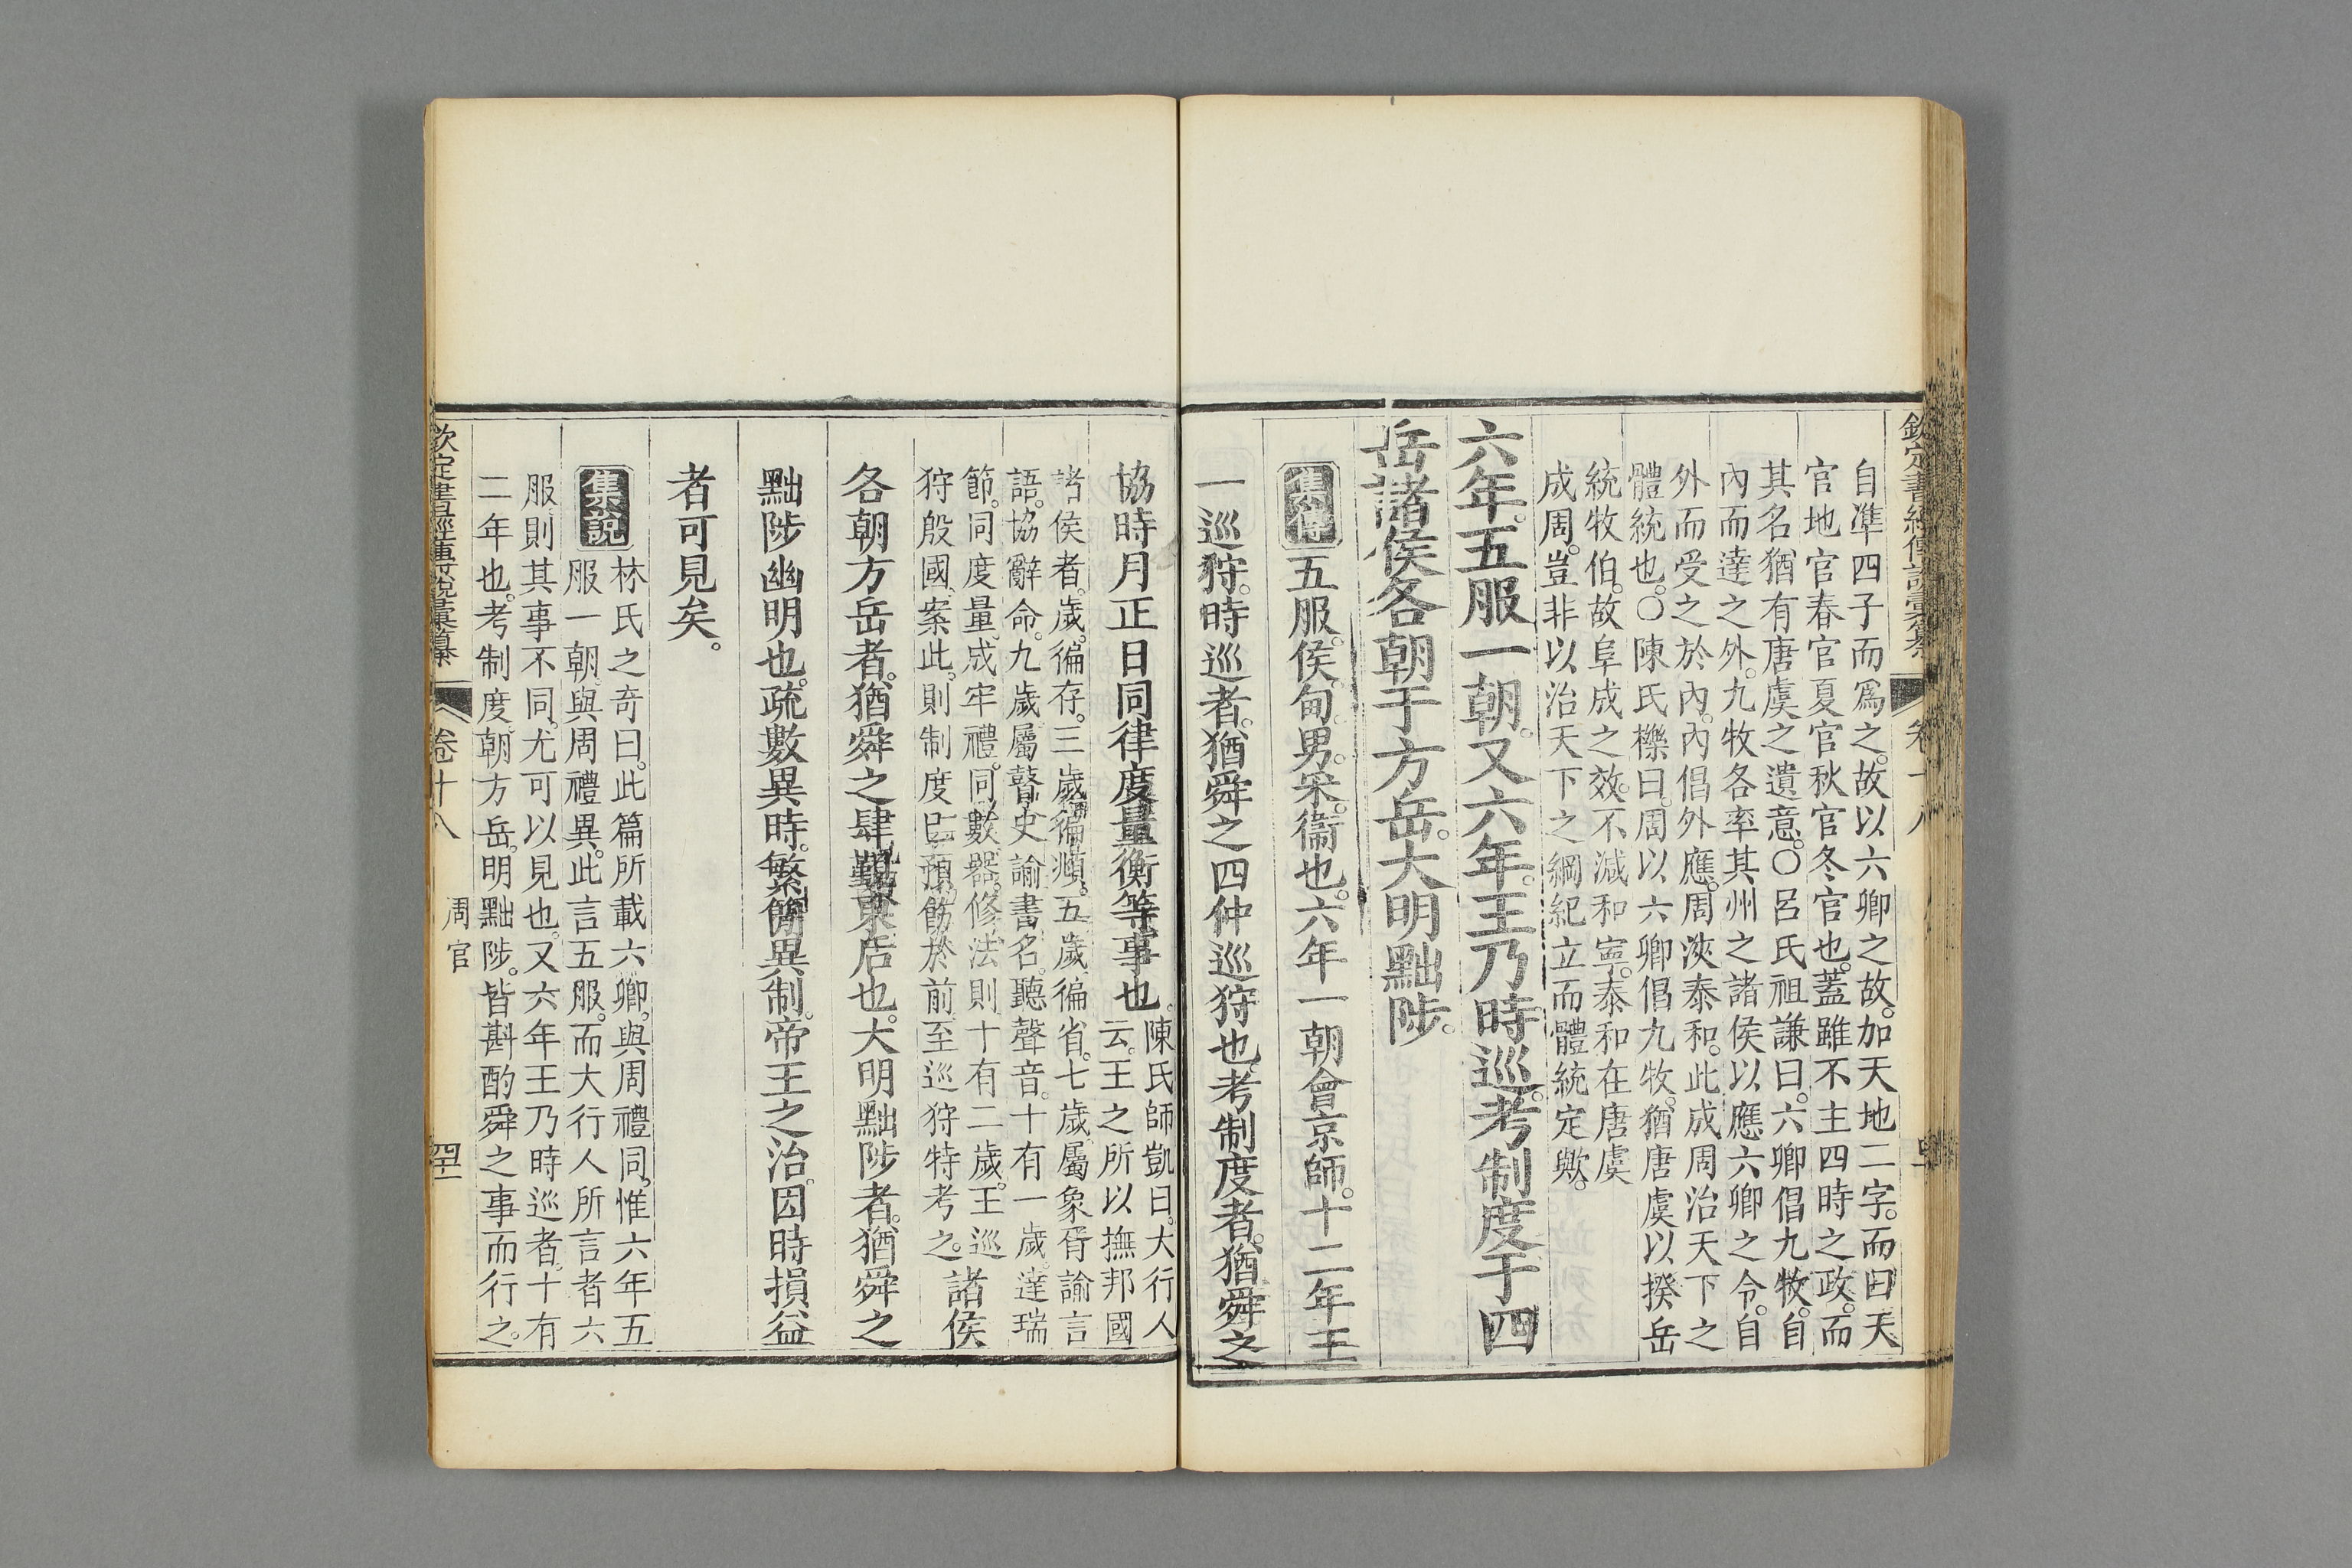 自準四子而為之。故以六卿之故。加天地二字。而曰天
官地官春官夏官秋官冬官也。蓋雖不主四時之政。而
其名猶有唐虞之遺意。○呂氏祖謙曰。六卿倡九牧。自
內而達之外。九牧各率其州之諸侯以應六卿之令。自
外而受之於內。內倡外應。周浹泰和。此成周治天下之
體統也。○陳氏櫟曰。周以六卿倡九牧。猶唐虞以揆岳
統牧伯。故阜成之效。不減和寧。泰和在唐虞
成周。豈非以治天下之綱紀立而體統定歟。
六年。五服一朝。又六年。王乃時巡。考制度于四
岳。諸侯各朝于方岳。大明黜陟。
集傳 五服。侯。甸。男。采。衞也。六年一朝會京師。十二年王
一巡狩。時巡者。猶舜之四仲巡狩也。考制度者。猶舜之
協時月正日同律度量衡等事也。陳氏師凱曰。大行人
云。王之所以撫邦國
諸侯者。歲徧存。三歲徧覜。五歲徧省。七歲屬象胥諭言
語。協辭命。九歲屬瞽史諭書名。聽聲音。十有一歲。達瑞
節。同度量。成牢禮。同數器。修法則。十有二歲。王巡
狩殷國。案此。則制度已預飭於前。至巡狩特考之。諸侯
各朝方岳者。猶舜之肆覲東后也。大明黜陟者。猶舜之
黜陟幽明也。疏數異時。繁簡異制。帝王之治。因時損益
者可見矣。
集說 林氏之奇曰。此篇所載六卿。與周禮同。惟六年五
服一朝。與周禮異。此言五服。而大行人所言者六
服。則其事不同。尤可以見也。又六年王乃時巡者。十有
二年也。考制度。朝方岳。明黜陟。皆斟酌舜之事而行之。
欽定書經傳說彙纂 卷十八 周官